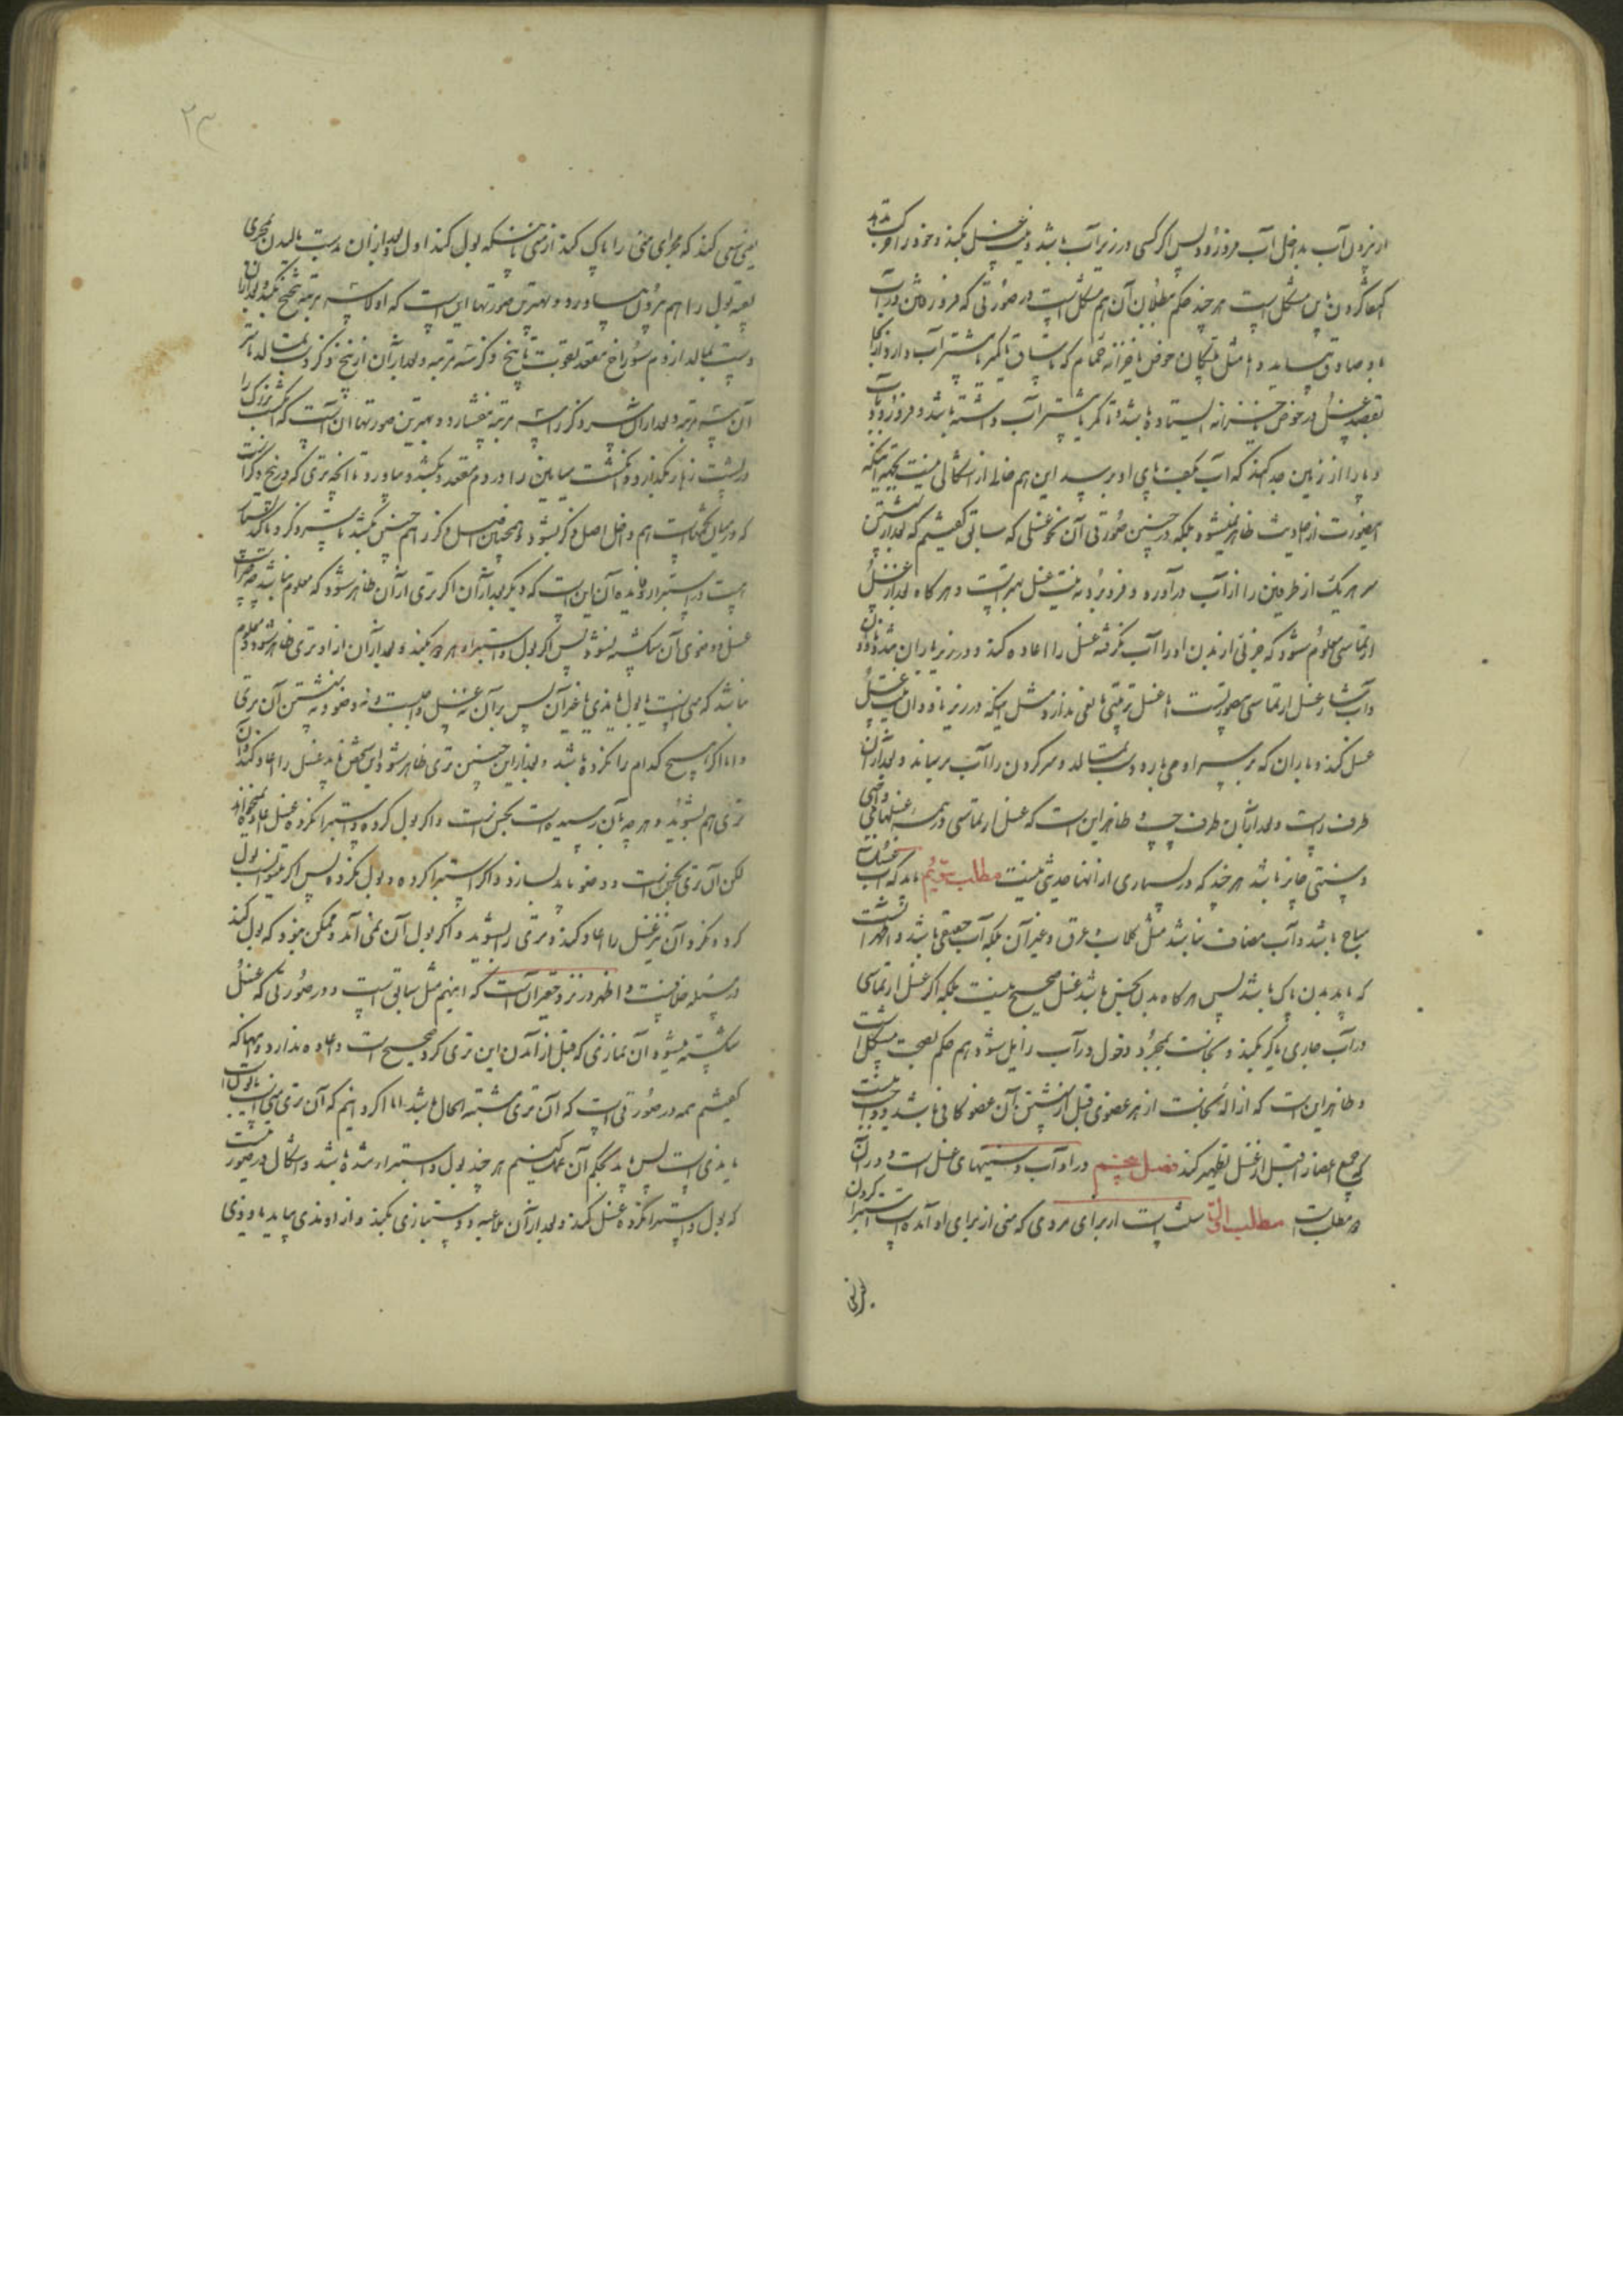 از بیرون آب بداخل آب فرو رود پس اگر کسی در زیر آب باشد و نیت غسل بکند و خود را حرکت بدهد
اکتفا کردن باین مشکل است هر چند حکم ببطلان آن هم مشکل است در صورتی که فرو رفتن در آب
باو صادق بیاید و اما مثل پلکان حوض یا خزانه حمام که تا ساق یا کمر یا بیشتر آب دارد از آنجا
بقصد غسل در حوض خزانه ایستاده باشد و تا کمر یا بیشتر آب داشته باشد و فرو رود بآب
و پا را از زمین جدا کند که آب بکف پای او برسد این هم خالی از اشکالی نیست بجهة اینکه
اینصورت از احادیث ظاهر نمیشود بلکه در چنین صورتی آن نحو غسلی که سابق گفتیم که بعد از شستن
سر هر یک از طرفین را از آب درآورد و فرو برد به نیت غسل بهتر است و هر گاه بعد از غسل
ارتماسی معلوم شود که جزئی از بدن او را آب نگرفته غسل را اعاده کند و در زیر باران تند و ناودان
و آبشار غسل ارتماسی بصورت نیست اما غسل ترتیبی نقصی ندارد مثل اینکه در زیر ناودان نیت غسل
غسل کند و باران که بر سر او می بارد دست بمالد و سر گردن را آب برساند و بعد از آن
طرف راست و بعد از آن طرف چپ و ظاهر این است که غسل ارتماسی در همه غسلهای واجبی
و سنتی جایز باشد هر چند که در بسیاری از آنها حدیثی نیست مطلب سوم باید که آب غسل
مباح باشد و آب مضاف نباشد مثل گلاب و عرق و غیر آن بلکه آب حقیقی باشد و اظهر آنست
که باید بدن پاک باشد پس هر گاه بدن نجس باشد غسل صحیح نیست بلکه اگر غسل ارتماسی
در آب جاری یا کر بکند و نجاست بمجرد دخول در آب زایل شود هم حکم بصحت مشکل است
و ظاهر این است که ازاله نجاست از هر عضوی قبل از شستن آن عضو کافی باشد و واجب نیست
که جمیع اعضا را قبل از غسل تطهیر کند فصل پنجم در آداب و سنتیهای غسل است و در آن
دو مطلب است مطلب اول سنت است از برای مردی که منی از برای او آمده است استبرا کردن
یعنی سعی کند که مجرای منی را پاک کند از منی باینکه بول کند اول و بعد از آن بدست مالیدن مجری
بقیه بول را هم بیرون بیاورد و بهترین صورتها این است که اولا سه مرتبه تنحنح بکند و بعد از آن
دست بمالد از دم سوراخ مقعد بقوت تا بیخ ذکر سه مرتبه و بعد از آن از بیخ ذکر دست بمالد تا سر
آن سه مرتبه و بعد از آن سر ذکر را سه مرتبه بیفشارد و بهترین صورتها آن است که انگشت بزرگ را
در پشت زهار بگذارد و انگشت میانین را در دم مقعد و بکشد و بیاورد تا آنچه تری که در بیخ ذکر است
که در میان تخمهاست هم داخل اصل ذکر بشود و همچنین اصل ذکر را هم چنین بکشد تا سر ذکر و تا که فشار
است در استبراء و فایده آن این است که دیگر بعد از آن اگر تری از آن ظاهر شود که معلوم نباشد چه چیز است
غسل و وضوی آن شکسته نشود پس اگر بول و استبرا هر دو بکند و بعد از آن از او تری ظاهر شود و معلوم
نباشد که منی است یا بول یا مذی یا غیر آن پس بر آن نه غسل واجب است و نه وضو و نه شستن آن تری
و اما اگر هیچ کدام را نکرده باشد و بعد از این چنین تری ظاهر شود این شخص باید غسل را اعاده کند و آن
تری هم بشوید و هر چه بآن رسیده است نجس است و اگر بول کرده و استبرا نکرده غسل اعاده نمیخواهد
لکن آن تری نجس است و وضو باید بسازد و اگر استبرا کرده و بول نکرده پس اگر میتوانست بول
کرد و نکرد آن نیز غسل را اعاده کند و تری را بشوید و اگر بول آن نمی آمد و ممکن نبود که بول کند
در مسئله خلاف است و اظهر در نزد حقیر آن است که اینهم مثل سابق است و در صورتی که غسل
شکسته میشود آن نمازی که قبل از آمدن این تری کرد صحیح است و اعاده ندارد و اینها که
گفتیم همه در صورتی است که آن تری مشتبه الحال باشد اما اگر دانیم که آن تری منی است یا بول است
یا مذی است پس باید بحکم آن عمل کنیم هر چند بول و استبراء شده باشد و اشکال در صورتیست
که بول و استبرا نکرده غسل کند و بعد از آن ملاعبه و دستبازی بکند و از او مذی بیاید یا وذی